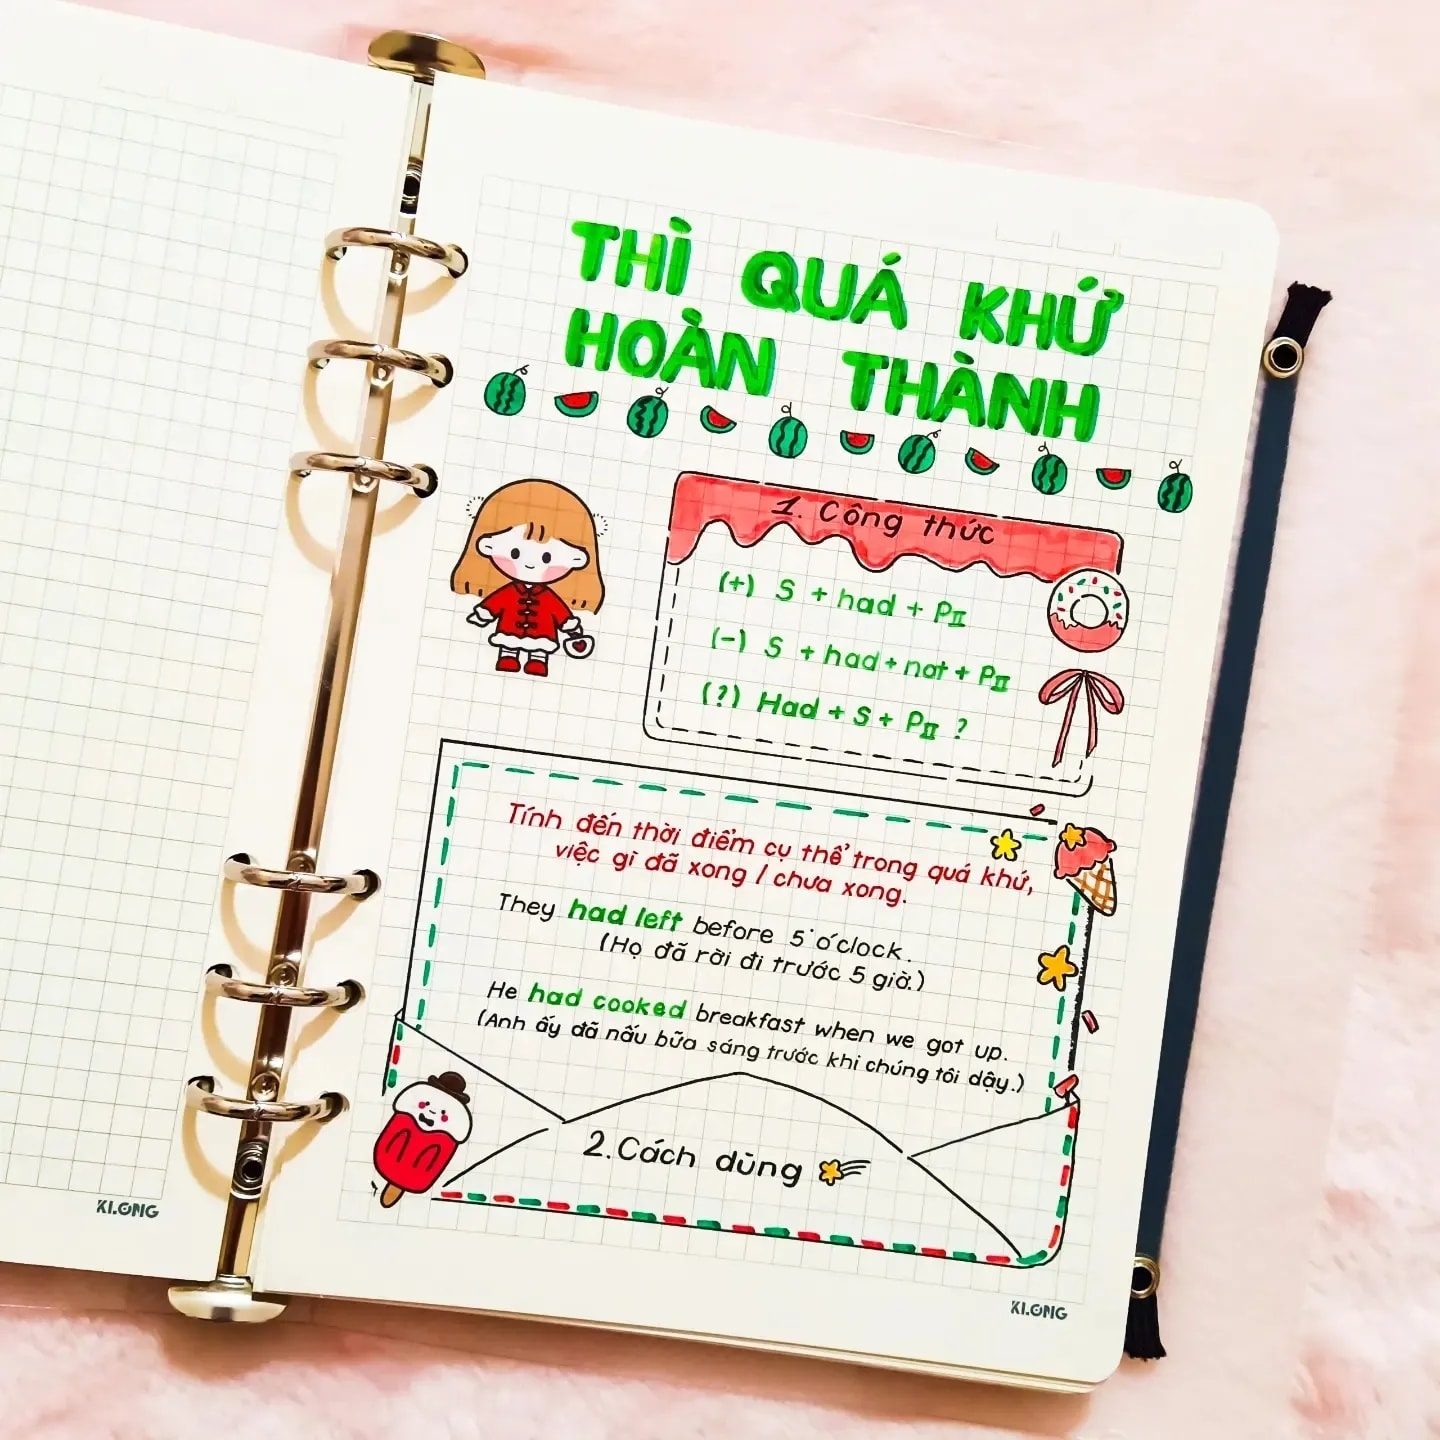 THÌ QUÁ KHỨ
HOÀN THÀNH
1. Công thức
(+) S + had + PII
(-) S + had + not + PII
(?) Had + S + PII ?
Tính đến thời điểm cụ thể trong quá khứ,
việc gì đã xong / chưa xong.
They had left before 5 o'clock.
(Họ đã rời đi trước 5 giờ.)
He had cooked breakfast when we got up.
(Anh ấy đã nấu bữa sáng trước khi chúng tôi dậy.)
2. Cách dùng
KLONG
KLONG